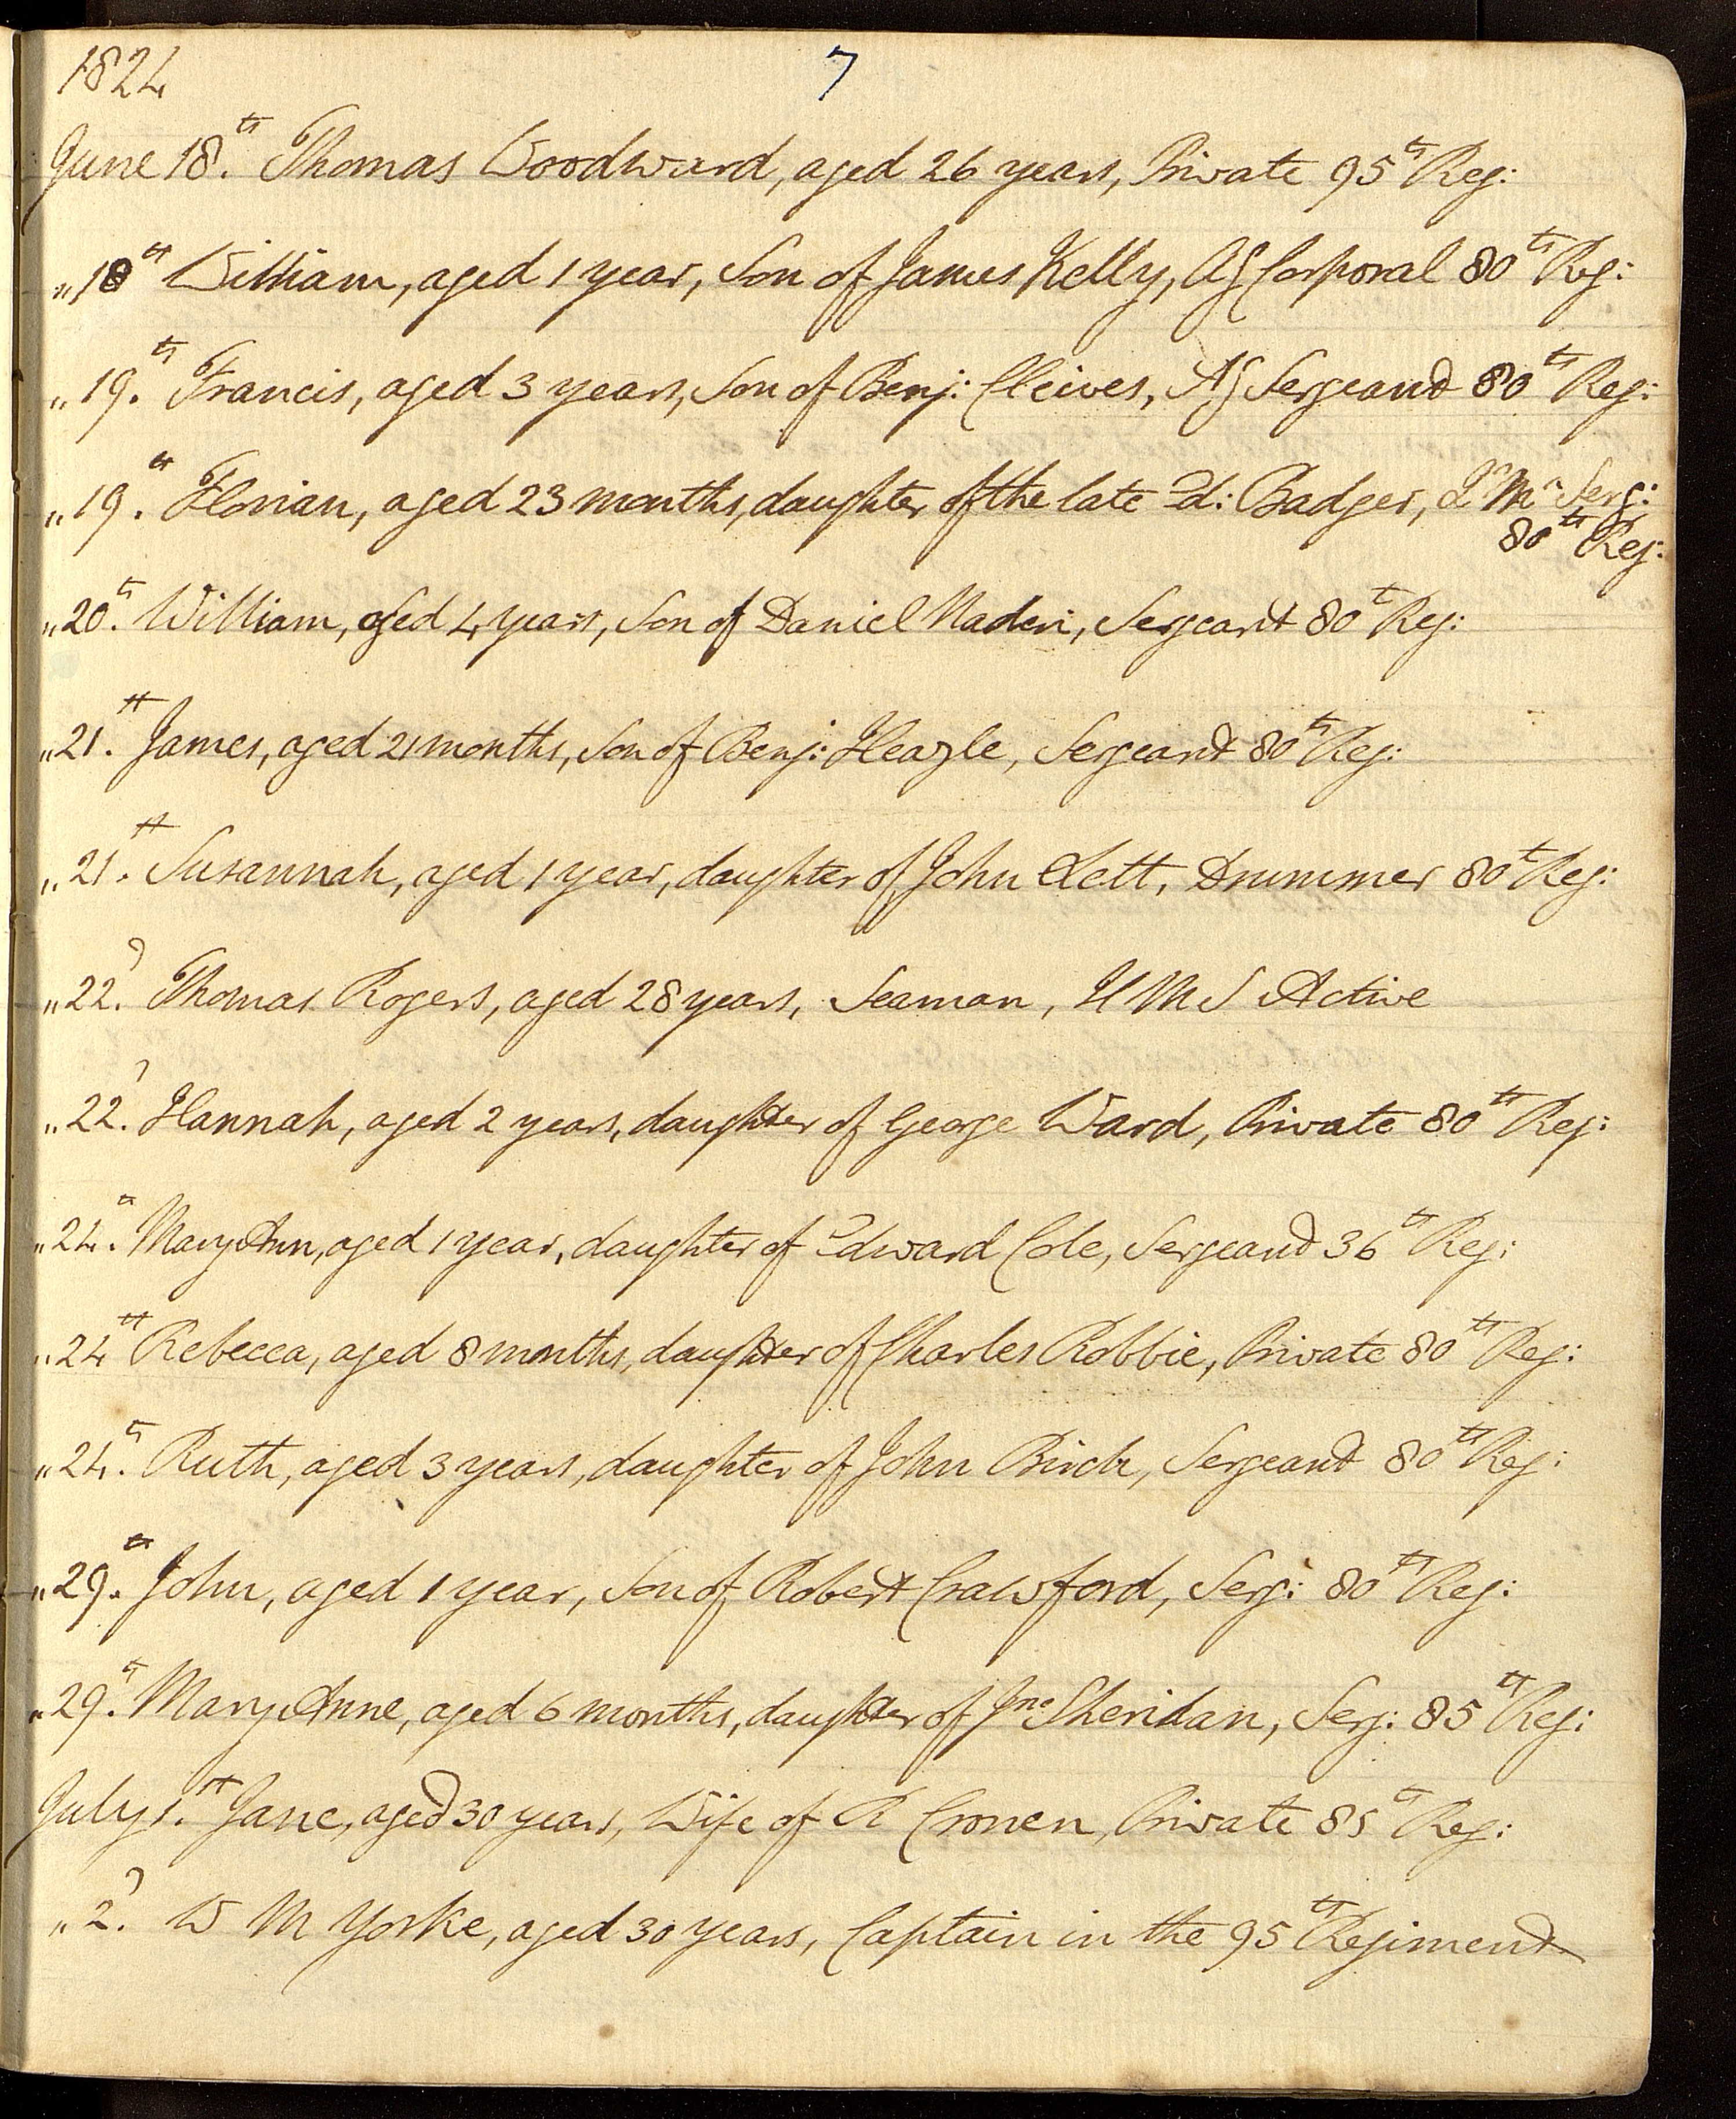 1824
7
June 18.th Thomas Woodward, aged 26 years, Private 95th Reg:
„ 18th William, aged 1 year, Son of James Kelly, Ag Corporal 80th Reg:
„ 19.th Francis, aged 3 years, Son of Benj: Cleives, Ag Sergeant 80th Reg:
„ 19.th Florian, aged 23 months, daughter of the late Ed: Badger, Qr Mr Serg:
80th Reg:
„ 20.th William, aged 4 years, Son of Daniel Naden, Sergeant 80th Reg:
„ 21.st James, aged 21 months, Son of Benj: Heazle, Sergeant 80th Reg:
„ 21.st Susannah, aged 1 year, daughter of John Lett, Drummer 80th Reg:
„ 22.d Thomas Rogers, aged 28 years, Seaman, H M S Active
„ 22.d Hannah, aged 2 years, daughter of George Ward, Private 80th Reg:
„ 24.th Mary Ann, aged 1 year, daughter of Edward Cole, Sergeant 36th Reg:
„ 24th Rebecca, aged 8 months, daughter of Charles Robbie, Private 80th Reg:
„ 24.th Ruth, aged 3 years, daughter of John Birch, Sergeant 80th Reg:
„ 29.th John, aged 1 year, Son of Robert Crawford, Serg: 80th Reg:
„ 29.th Mary Anne, aged 6 months, daughter of Jno Sheridan, Serg: 85th Reg:
July 1.st Jane, aged 30 years, Wife of R Cronen, Private 85th Reg:
„ 2.d W M Yorke, aged 30 years, Captain in the 95th Regiment